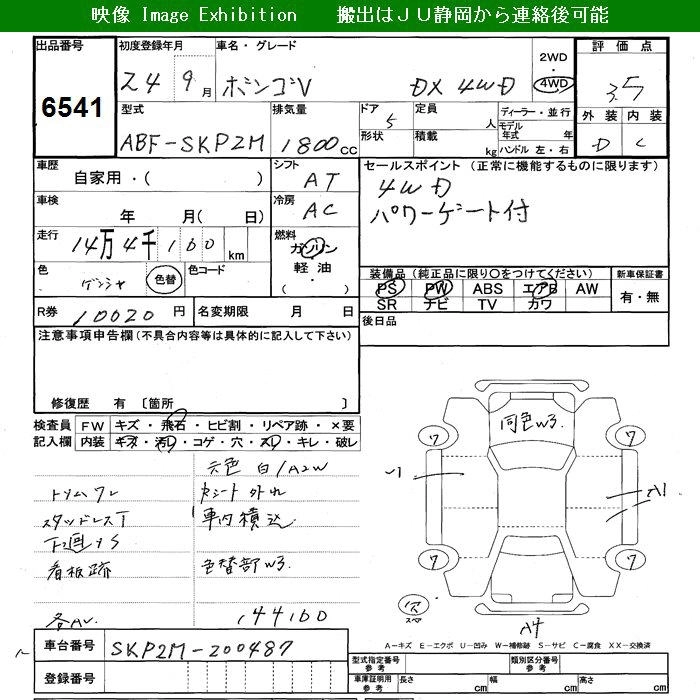 映像 Image Exhibition 搬出はＪＵ静岡から連絡後可能
出品番号 6541
初度登録年月 24 9月
車名・グレード ボンゴV DX 4WD
2WD・4WD
評価点 3.5
外装 D 内装 C
型式 ABF-SKP2M
排気量 1800cc
ドア 5 形状
定員 人 積載 kg
ディーラー・並行
モデル年式 年
ハンドル 左・右
車歴 自家用・( )
シフト AT
セールスポイント (正常に機能するものに限ります)
4WD
パワーゲート付
車検 年 月(日)
冷房 AC
走行 14万4千160km
燃料 ガソリン 軽油・
色 色替 色コード
装備品 (純正品に限り○をつけてください)
PS PW ABS エアB AW
SR ナビ TV カワ
新車保証書 有・無
R券 10020円
名変期限 月 日
後日品
注意事項申告欄 (不具合内容等は具体的に記入して下さい)
修復歴 有 〔箇所 〕
検査員記入欄
FW キズ・飛石・ヒビ割・リペア跡・×要
内装 キズ・汚レ・コゲ・穴・スレ・キレ・破レ
元色 白/A2W
トリムワレ
シート外れ
スタッドレスT
車内積込
下廻りS
看板跡
色替部W3.
各AU.
144160
同色W3.
ワ ワ
ワ ワ
A1
穴
スペア
A4
A－キズ E－エクボ U－凹み W－補修跡 S－サビ C－腐食 XX－交換済
車台番号 SKP2M-200487
登録番号
型式指定番号 参考
類別区分番号 参考
車庫証明用 参考 長さ cm 幅 cm 高さ cm